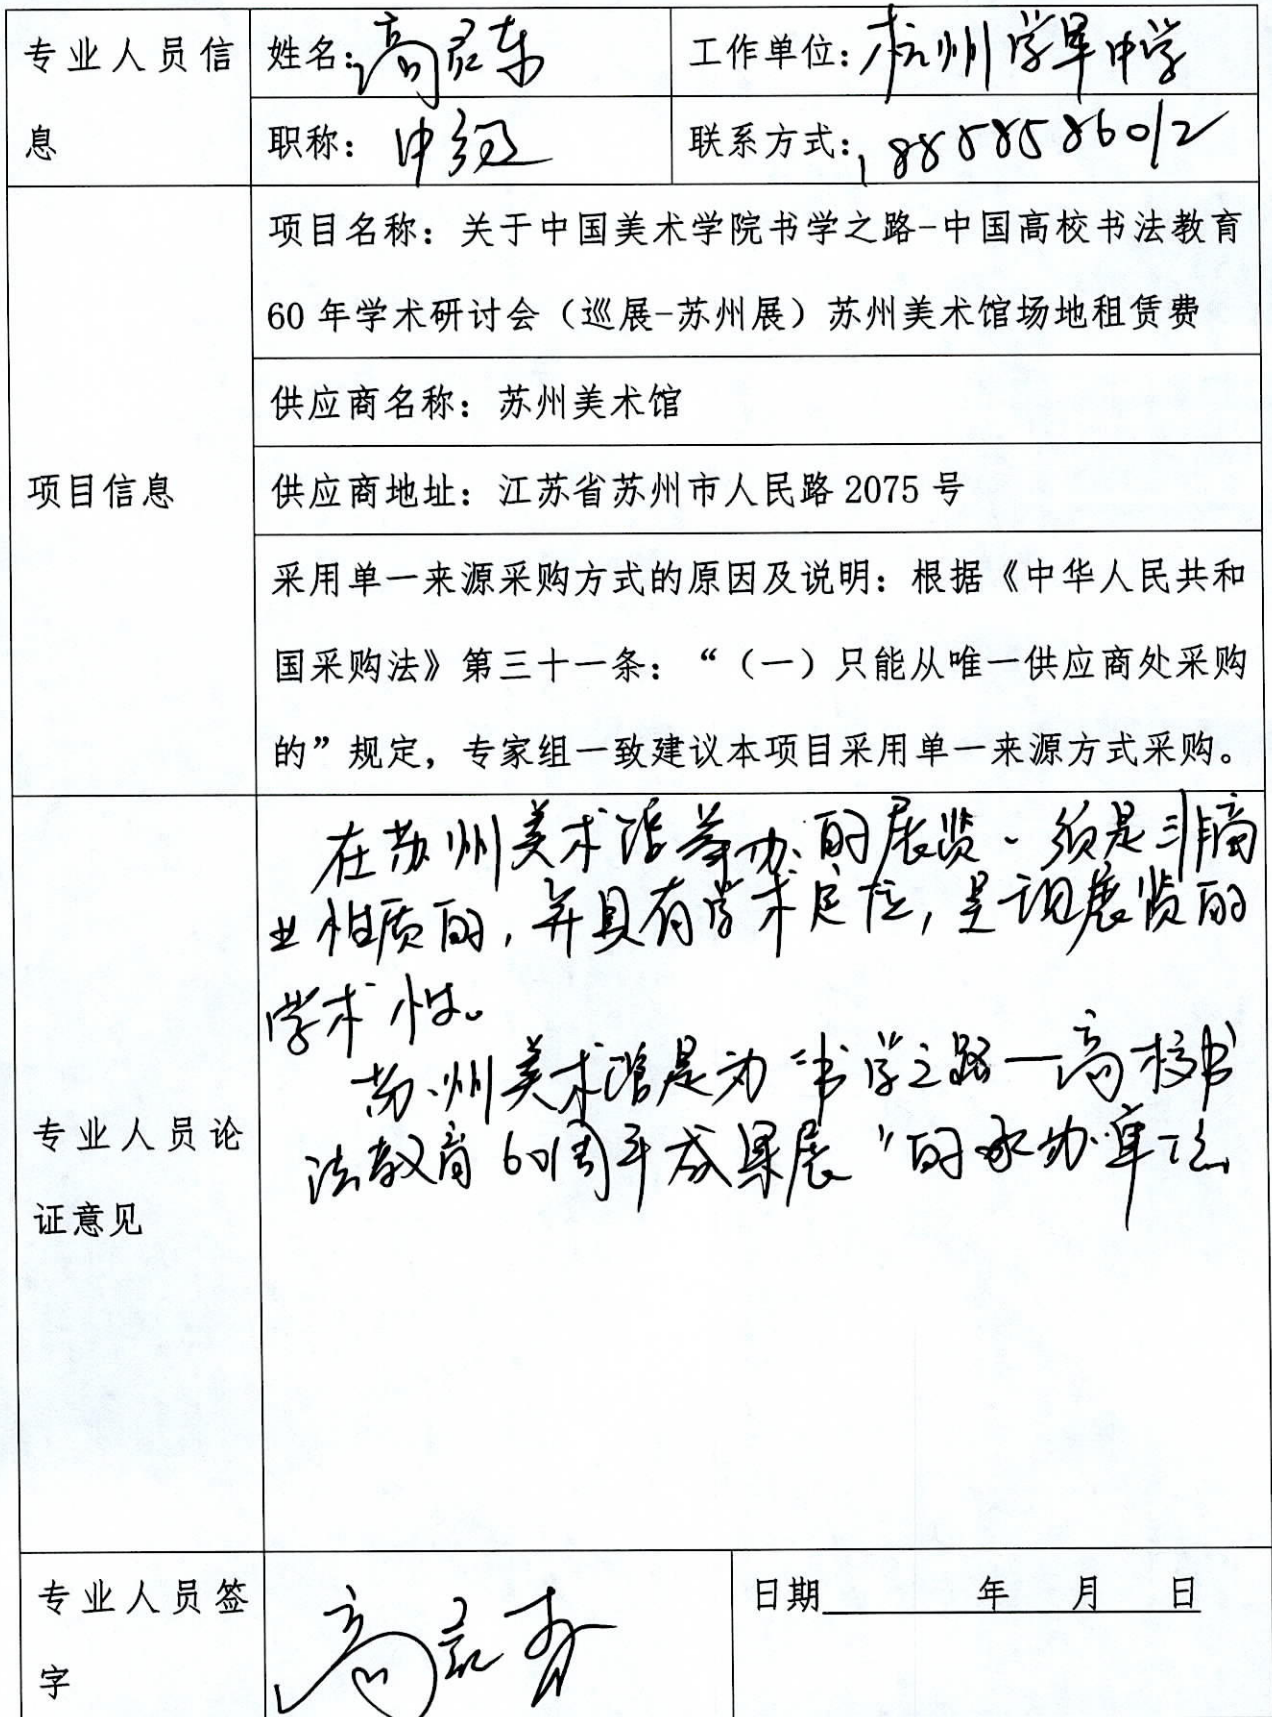 专业人员信息
姓名：高君东
工作单位：杭州学军中学
职称：中级
联系方式：18858586012
项目信息
项目名称：关于中国美术学院书学之路-中国高校书法教育
60年学术研讨会（巡展-苏州展）苏州美术馆场地租赁费
供应商名称：苏州美术馆
供应商地址：江苏省苏州市人民路2075号
采用单一来源采购方式的原因及说明：根据《中华人民共和
国采购法》第三十一条：“（一）只能从唯一供应商处采购
的”规定，专家组一致建议本项目采用单一来源方式采购。
专业人员论
证意见
在苏州美术馆举办的展览、须是非商
业性质的，并具有学术定位，呈现展览的
学术性。
苏州美术馆是为“书学之路—高校书
法教育60周年成果展”的承办单位
专业人员签
字
日期 年 月 日